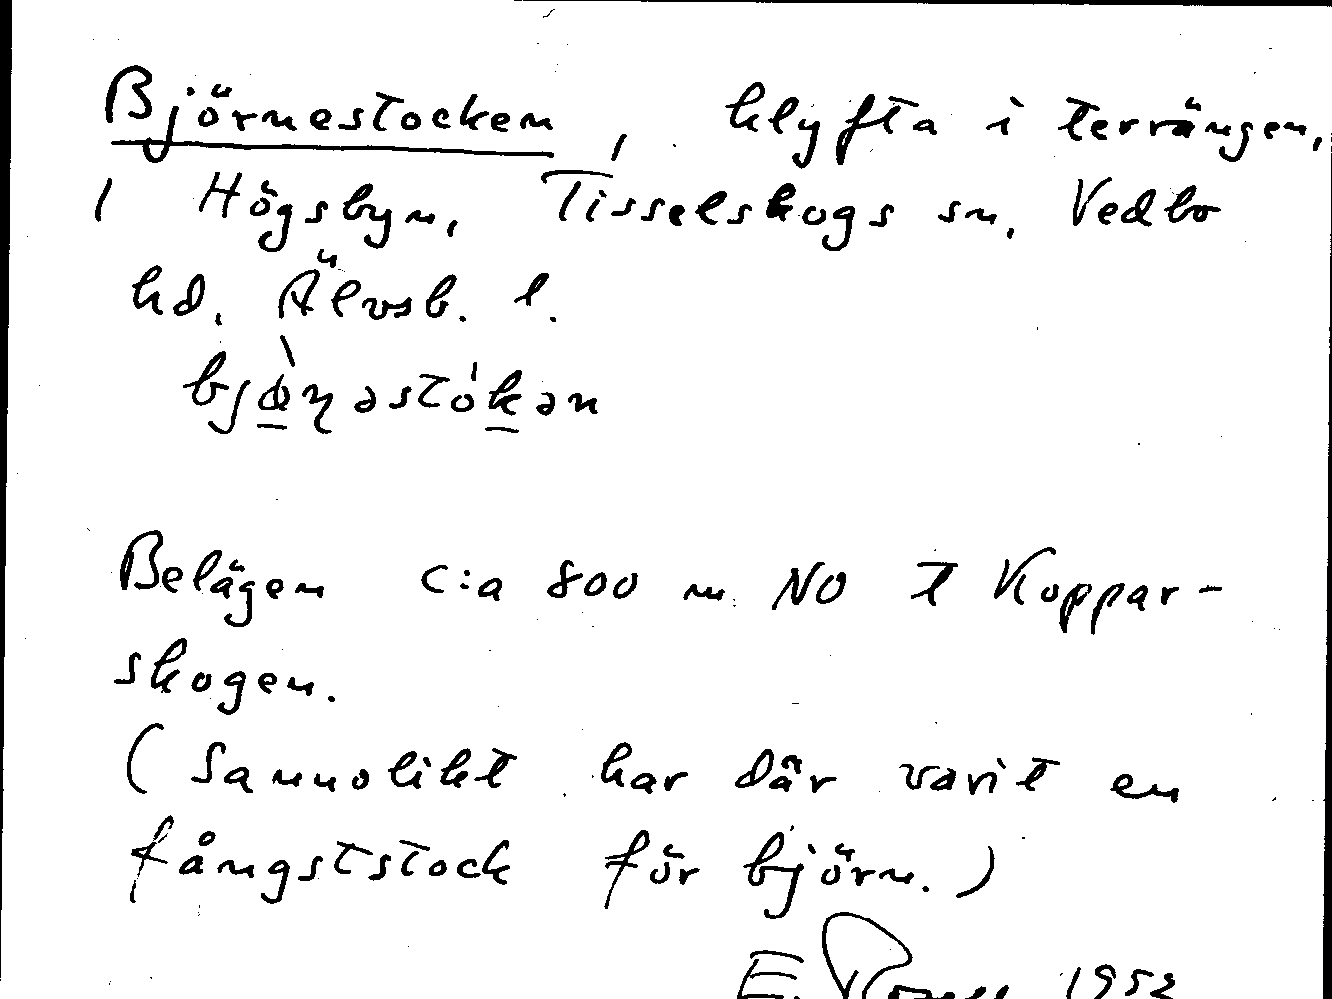 Björnestocken, klyfta i terrängen,
i Högsbyn, Tisselskogs sn, Vedbo
hd, Älvsb. l.
Belägen c:a 800 m NO t Koppar-
skogen.
(Sannolikt har där varit en
fångststock för björn.)
E. 1952